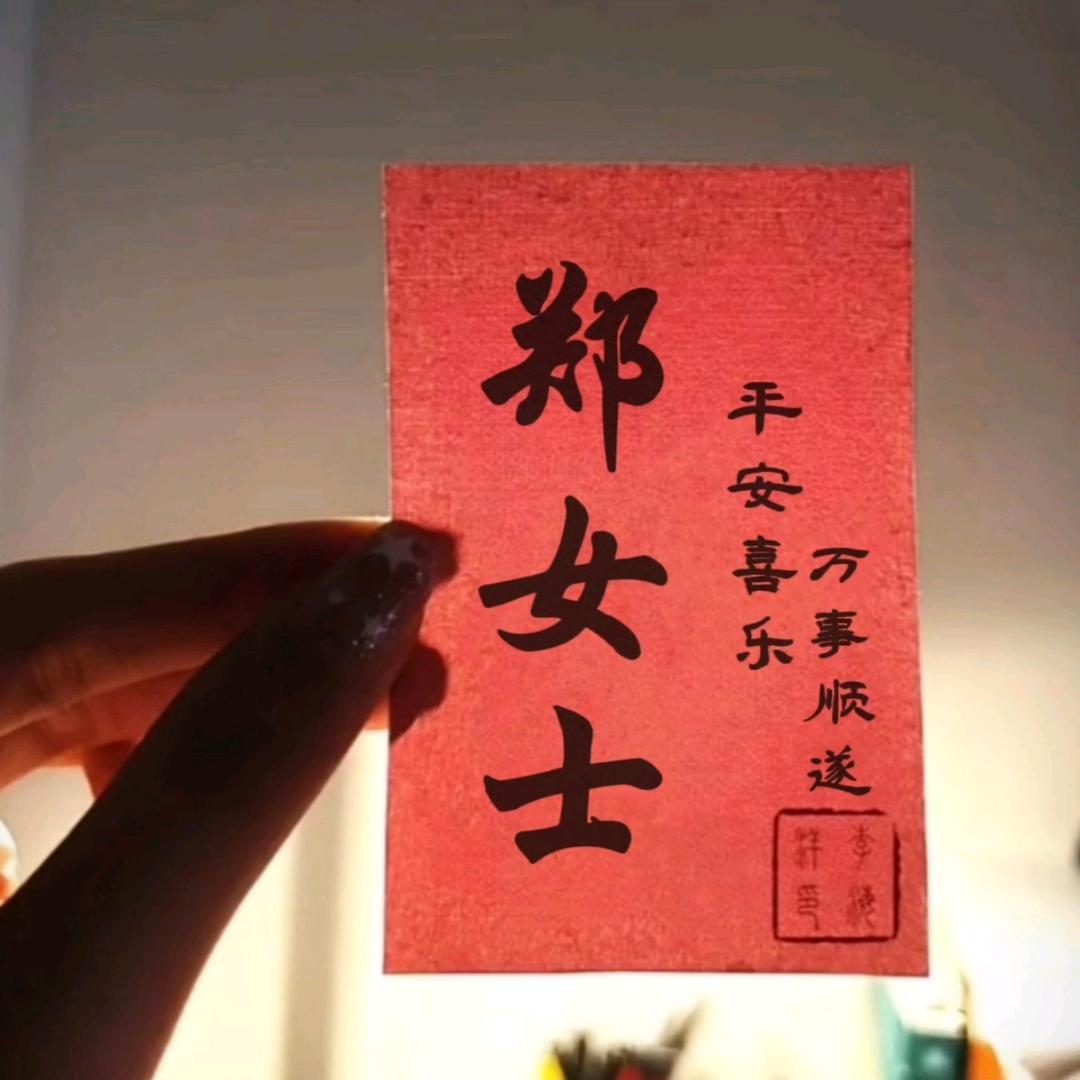 郑女士
平安喜乐
万事顺遂